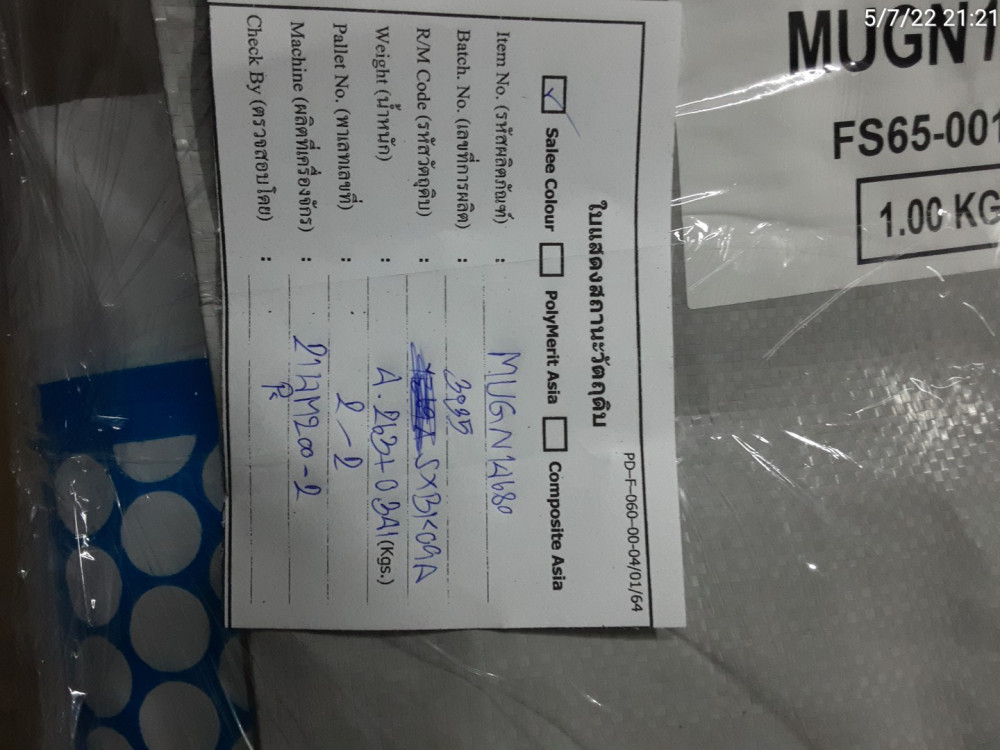 5/7/22 21:21
MUGN1
FS65-001
1.00 KG
PD-F-060-00-04/01/64
ใบแสดงสถานะวัตถุดิบ
☑ Salee Colour ☐ PolyMerit Asia ☐ Composite Asia
Item No. (รหัสผลิตภัณฑ์) : MUGN14680
Batch. No. (เลขที่การผลิต) :
R/M Code (รหัสวัตถุดิบ) : SXBK09A
Weight (น้ำหนัก) : (Kgs.)
Pallet No. (พาเลทเลขที่) : 2-2
Machine (ผลิตที่เครื่องจักร) :
Check By (ตรวจสอบโดย) :